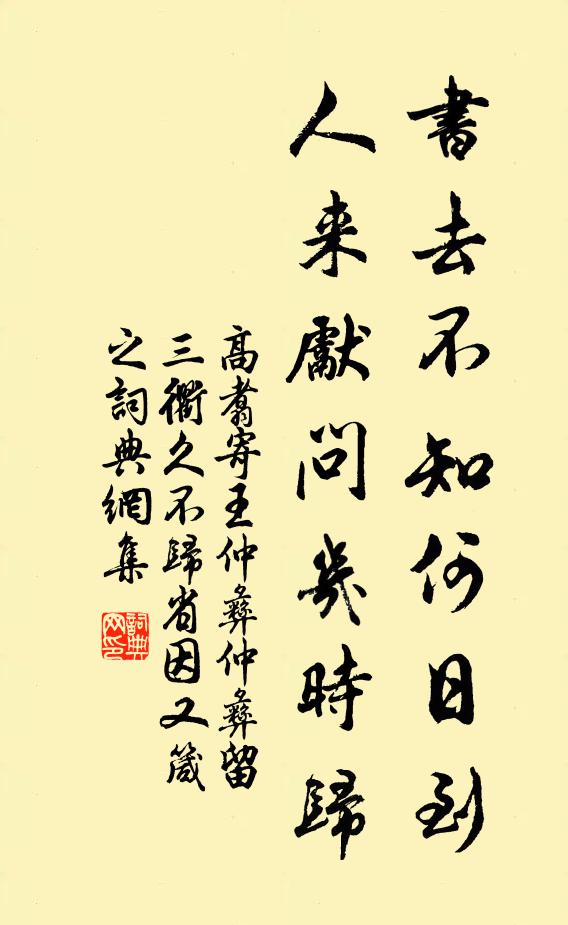 書去不知何日到
人来獻問幾時歸
高翥寄王仲彝仲彝留
三衢久不歸省因又箴
之詞典網集
詞典
网印